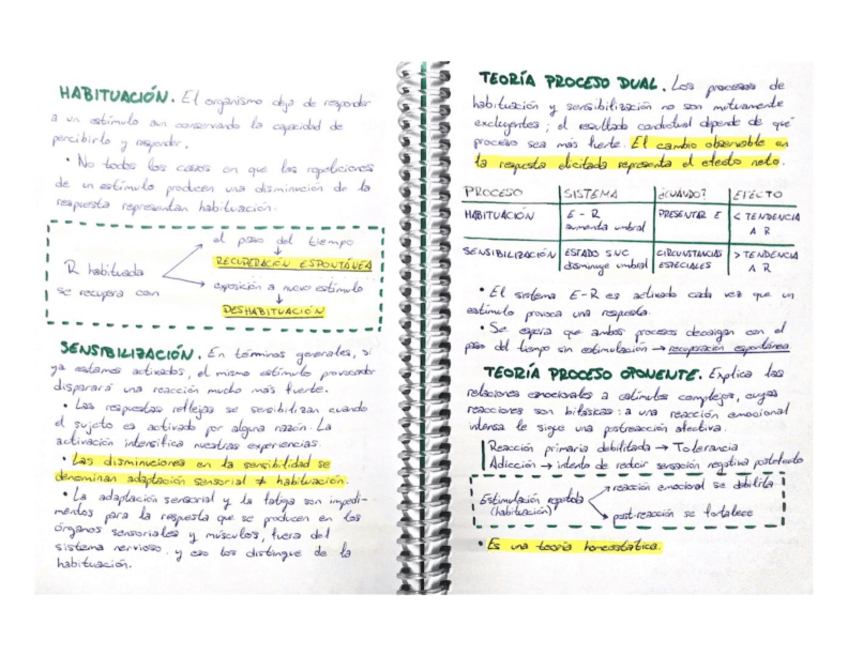 HABITUACIÓN. El organismo deja de responder
a un estímulo aun conservando la capacidad de
percibirlo y responder.
• No todos los casos en que las repeticiones
de un estímulo producen una disminución de la
respuesta representan habituación.
R habituada
se recupera con
el paso del tiempo
↓
RECUPERACIÓN ESPONTÁNEA
exposición a nuevo estímulo
↓
DESHABITUACIÓN
SENSIBILIZACIÓN. En términos generales, si
ya estamos activados, el mismo estímulo provocador
disparará una reacción mucho más fuerte.
• Las respuestas reflejas se sensibilizan cuando
el sujeto es activado por alguna razón. La
activación intensifica nuestras experiencias.
• Las disminuciones en la sensibilidad se
denominan adaptación sensorial ≠ habituación.
• La adaptación sensorial y la fatiga son impedi-
mentos para la respuesta que se producen en los
órganos sensoriales y músculos, fuera del
sistema nervioso y eso los distingue de la
habituación.
TEORÍA PROCESO DUAL. Los procesos de
habituación y sensibilización no son mutuamente
excluyentes; el resultado conductual depende de qué
proceso sea más fuerte. El cambio observable en
la respuesta elicitada representa el efecto neto.
PROCESO SISTEMA ¿CUÁNDO? EFECTO
HABITUACIÓN E-R aumenta umbral PRESENTAR E < TENDENCIA A R
SENSIBILIZACIÓN ESTADO SNC disminuye umbral CIRCUNSTANCIAS ESPECIALES > TENDENCIA A R
• El sistema E-R es activado cada vez que un
estímulo provoca una respuesta.
• Se espera que ambos procesos decaigan con el
paso del tiempo sin estimulación → recuperación espontánea.
TEORÍA PROCESO OPONENTE. Explica las
relaciones emocionales a estímulos complejos, cuyas
reacciones son bifásicas: a una reacción emocional
intensa le sigue una postreacción afectiva.
Reacción primaria debilitada → Tolerancia
Adicción → intento de reducir sensación negativa postefecto
Estimulación repetida
(habituación)
reacción emocional se debilita
post-reacción se fortalece
• Es una teoría homeostática.